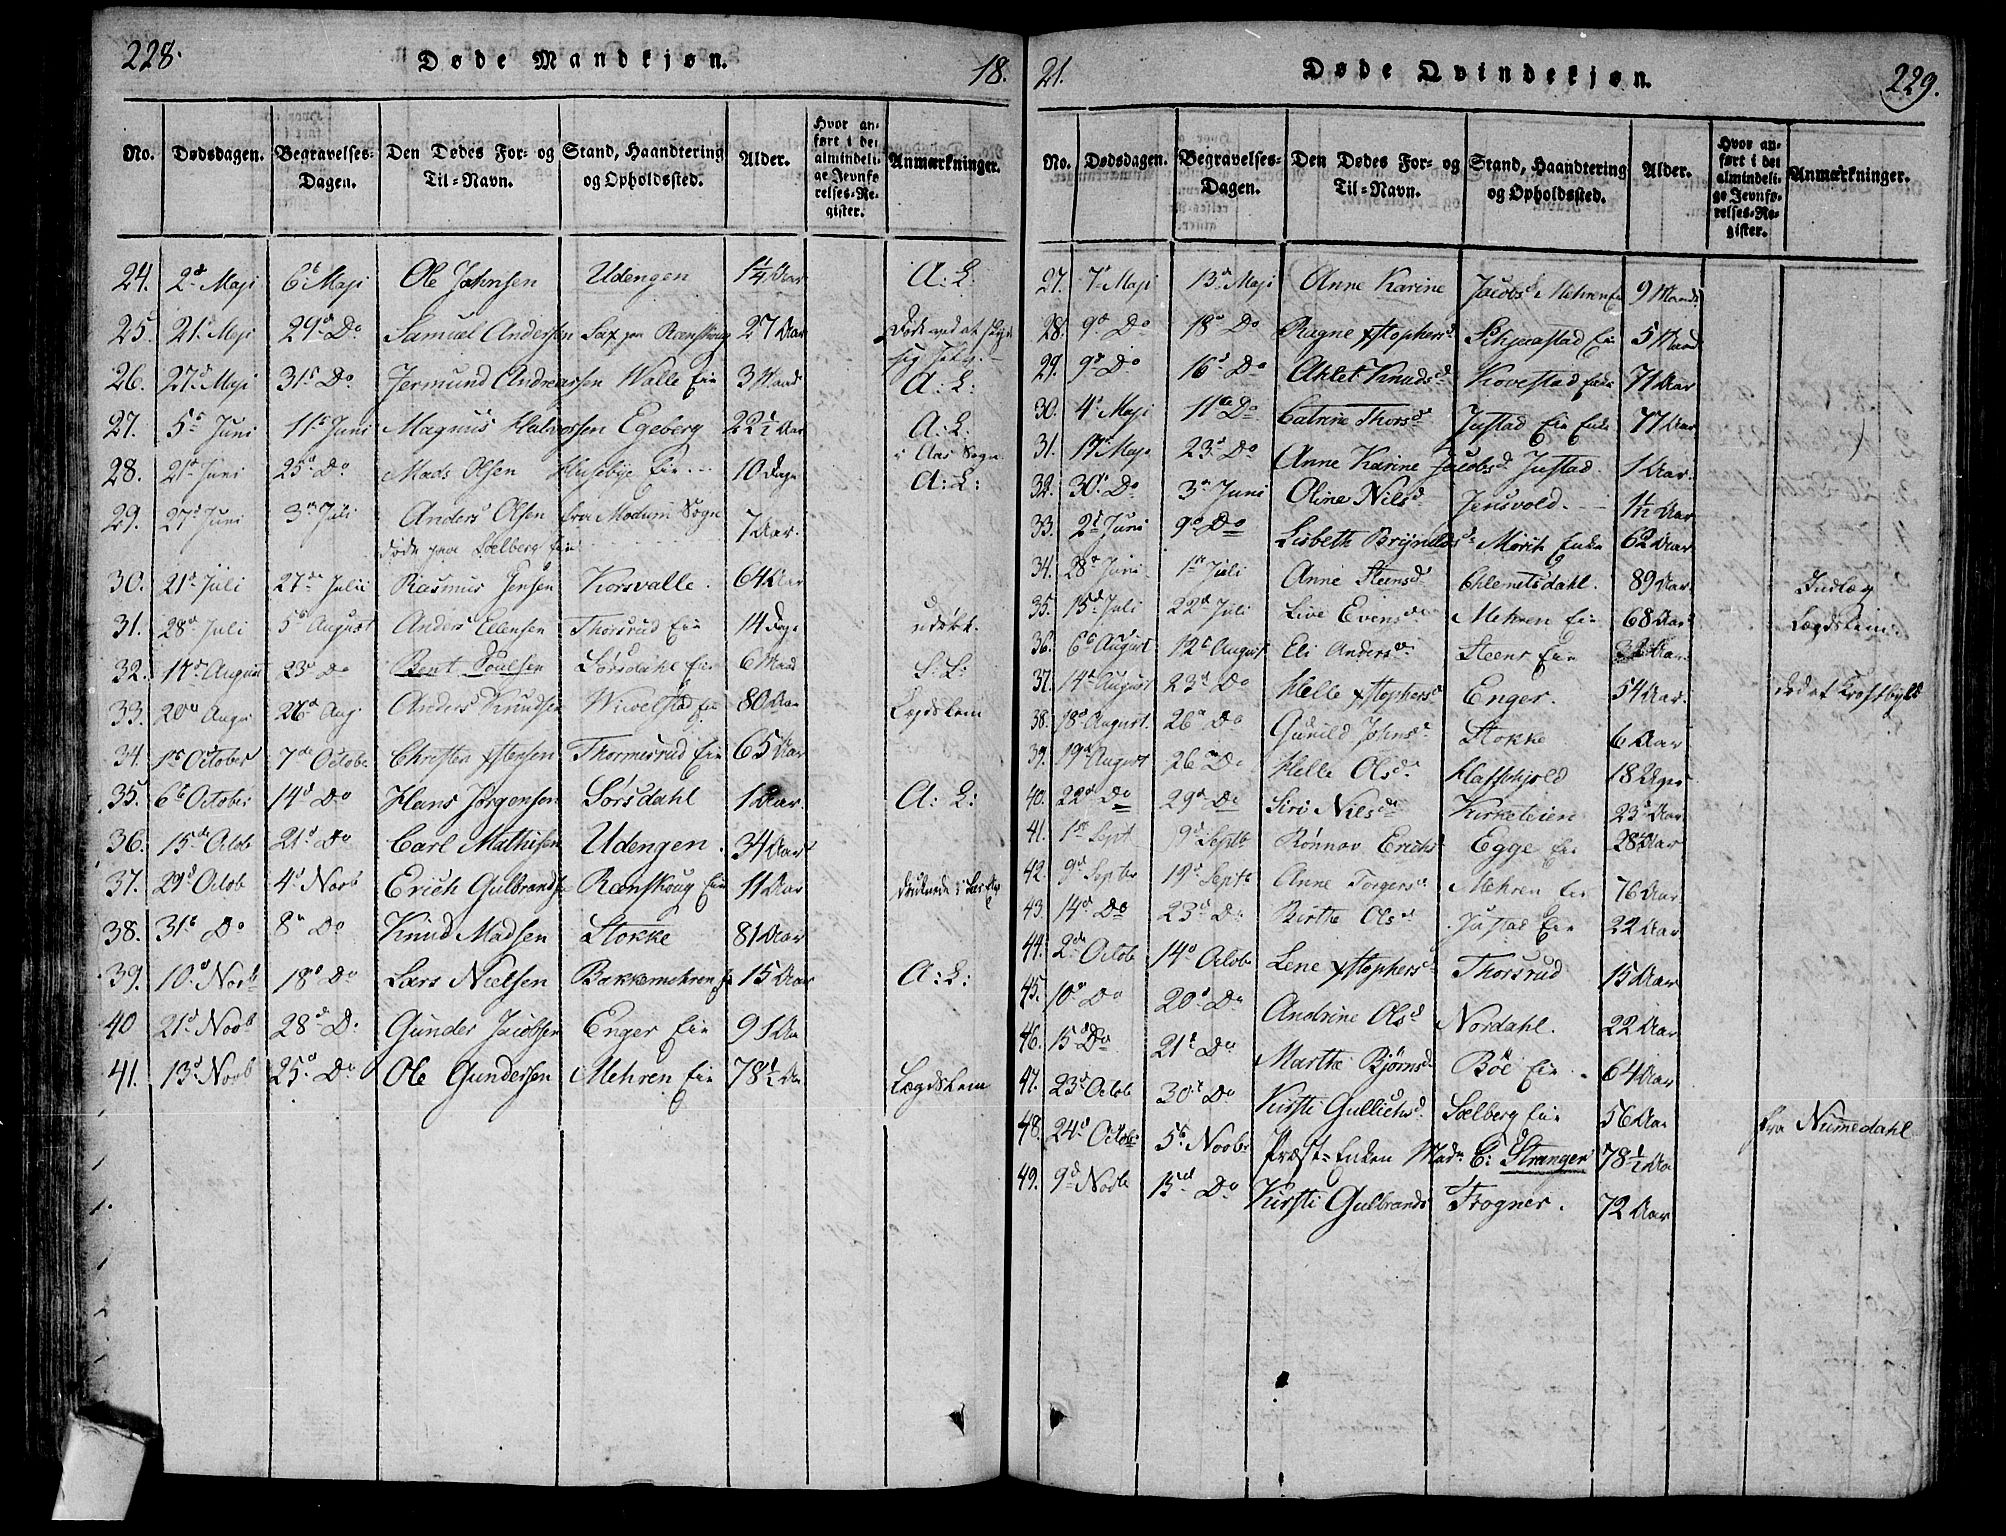 228.
Døde Mandkjøn.
18.
No. Dødsdagen. Begravelses-Dagen. Den Dødes For- og Til-Navn. Stand, Haandtering og Opholdssted. Alder. Hvor anført i det almindelige Jevnførelses-Register. Anmærkninger.
24. 2d Maji 6te Maji Ole Johnsen Udengen 1 1/4 Aar A: L:
25. 21d Maji 29de Do Samuel Andersen Sax paa Ramskoug 27 Aar Døde ved at
26. 27d Maji 31te Do Jermund Andreassen Walle Eie 3 Maan A: L:
27. 5te Juni 11te Juni Magnus Halvorsen Egeberg 22 1/2 Aar A: L:
i Aas Sogn
28. 21d Juni 25d Do Mads Olsen Husebye Eie 10 Dage A: L:
29. 27d Juni 3de Juli Anders Olsen fra Modum Sogn 7 Aar.
døde paa Sølberg Eie
30. 21d Juli 27de Julii Rasmus Jensen Korsvalle. 64 Aar
31. 28d Juli 5te August Anders Ellensen Thorsrud Eie 14 Dage udøbt.
32. 17d August 23d Do Bent Poulsen Sørsdahl Eie 6 Maan S: L:
33. 20d Augu 26d Aug Anders Knudsen Wivelstad Eie 80 Aar Lægdslem
34. 1te October 7de Octobr Christen Xstensen Thormesrud Eie 65 Aar
35. 6te October 14d Do Hans Jørgensen Sørsdahl 1 Aar. A: L:
36. 15de Octob 21d Do Carl Mathisen Udengen. 34 Aar
37. 29d Octob 4d Novb Erich Gulbrands Ramskoug Eie 11 Aar druknede i
38. 31te Do 8de Do Knud Madsen Stokke 81 Aar
39. 10d Novb 18d Do Lars Nielsen Bakkemehren 15 Aar A: L:
40 21d Novb 28de Do Gunder Jacobsen Enger Eie 91 Aar
41. 13d Novb 25d Do Ole Gundersen Mehren Eie 78 1/2 Aar Lægdslem
21.
Døde Qvindekjøn.
229.
No. Dødsdagen. Begravelses-Dagen. Den Dødes For- og Til-Navn. Stand, Haandtering og Opholdssted. Alder. Hvor anført i det almindelige Jevnførelses-Register. Anmærkninger.
27. 7d Maji 13d Maji Anne Karine Jacobsd. Mehren Eie 9 Maan
28. 9d Do 18d Do Ragne Xstophersd. Schjerstad Eie 5 Maan
29. 9d Do 16d Do Aslet Knudsd Kovestad Enke 71 Aar
30. 4d Maji 11te Do Catrine Thorsd Justad Eie Enke 77 Aar
31. 17d Maji 23d Do Anne Karine Jacobsd. Justad. 1 Aar.
32. 30d Do 3de Juni Oline Nilsd. Jensvold. 1 1/2 Aar
33. 2d Juni 9d Do Lisbeth Brynildsd. Morit Enke 62 Aar
34. 28d Juni 1te Juli Anne Steensd. Clemetsdahl. 89 Aar Indlæg
35. 15d Juli 22d Juli Live Evensd. Mehren Eie 68 Aar Lægdslem
36. 6te August 12te August Eli Andersd. Steens Eie 32 Aar
37. 14d August 23d Do Helle Xstophersd. Enger. 54 Aar. død af Kræftbyld
38. 18d August. 26d Do Gunild Johnsd. Stokke 6 Aar
39. 19d August 26de Do Helle Olsd. Haffskjold 18 Uger
40. 22d Do 29d Do Siri Nilsd. Kirketeien 23d Aar
41. 1te Sept 9d Septb Rønnov Erichsd Egge Eie 28 Aar
42. 9d Septbr 19d Septb Anne Torgersd Mehren Eie 76 Aar
43. 14d Do 23d Do Birthe Olsd. Justad Eie 22 Aar
44. 2de Octob 14d Octob Lene Xstophersd. Thorsrud 15 Aar
45. 10d Do 20d Do Andrine Olsd. Nordahl. 22 Aar
46. 15d Do 21d Do Marthe Bjørnsd. Böe Eie 64 Aar
47. 23d Octob 30d Do Kirsti Gullichsd. Sølberg Eie 56 Aar fra Nummedahl
48. 24d Octob 5te Novbr Præst-Enken Made C: Stranger 78 1/2 Aar
49. 9d Novb 15d Do Kirsti Gulbrandsd Frogner. 72 Aar